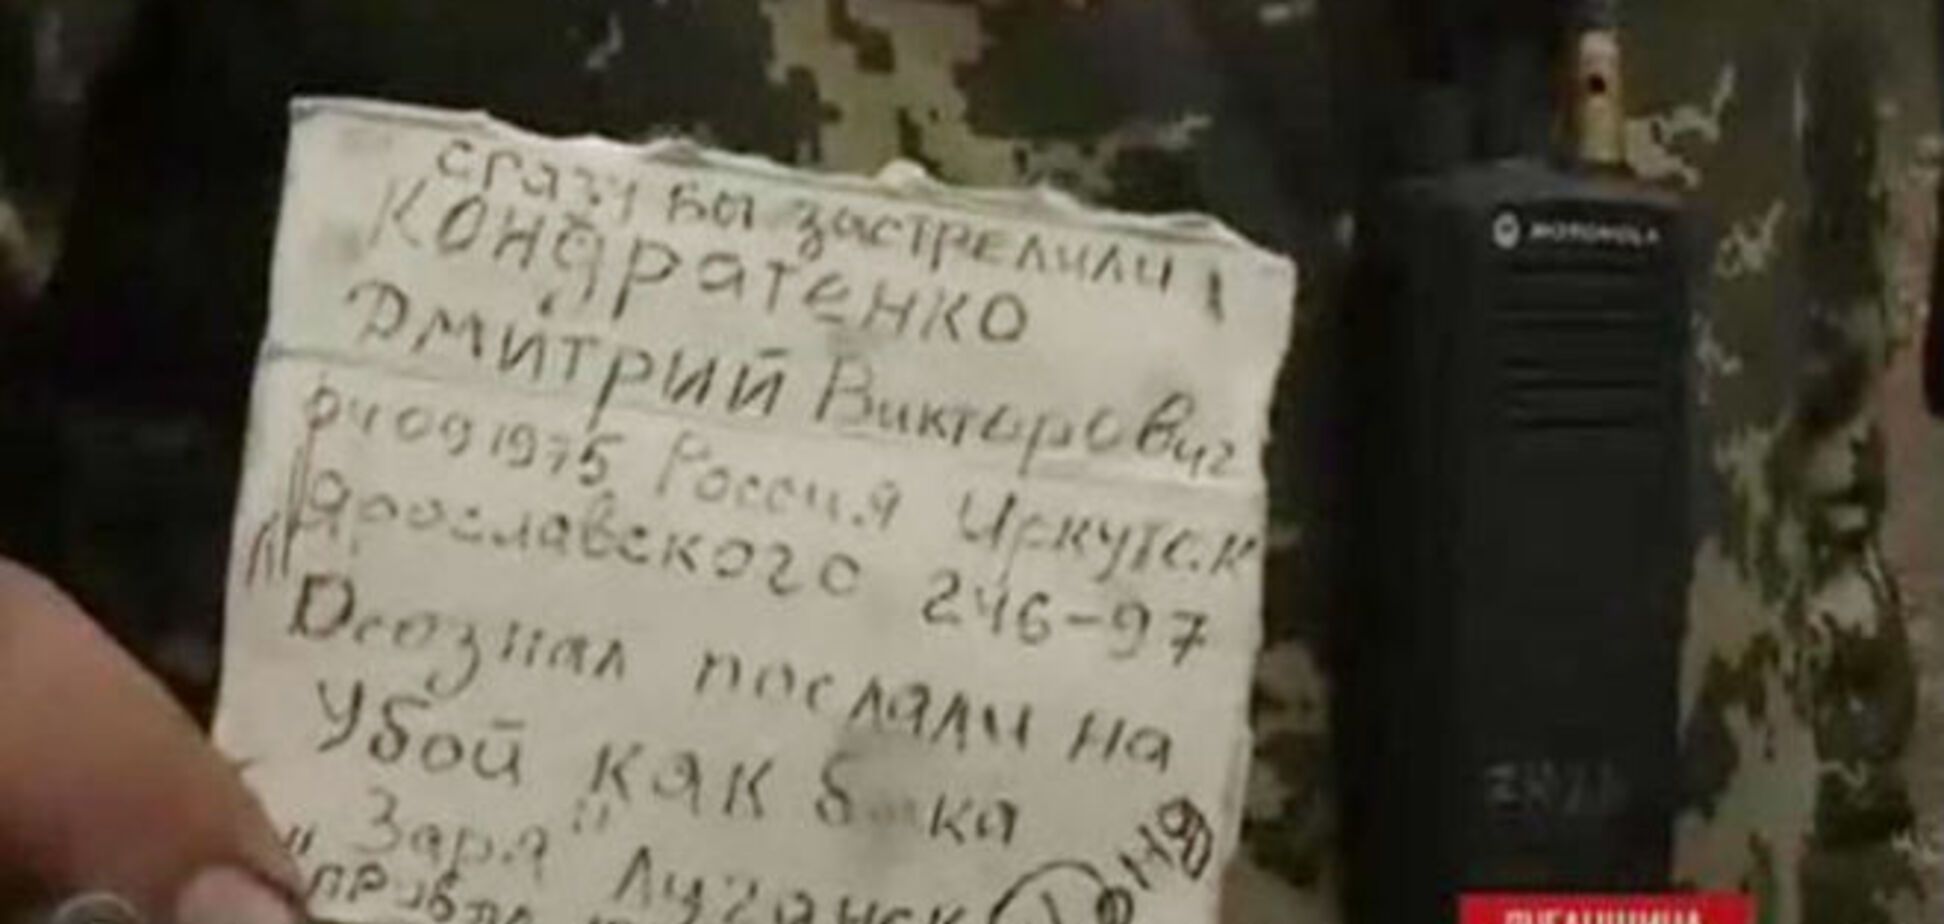 сразу вы застрелили
Кондратенко
Дмитрий Викторовиг
04091975 Россия Иркутск
Ярославского 246-97
Осознал послали на
убой как
"Заря" Луганск
MOTOROLA
ЛУГАНЩИНА